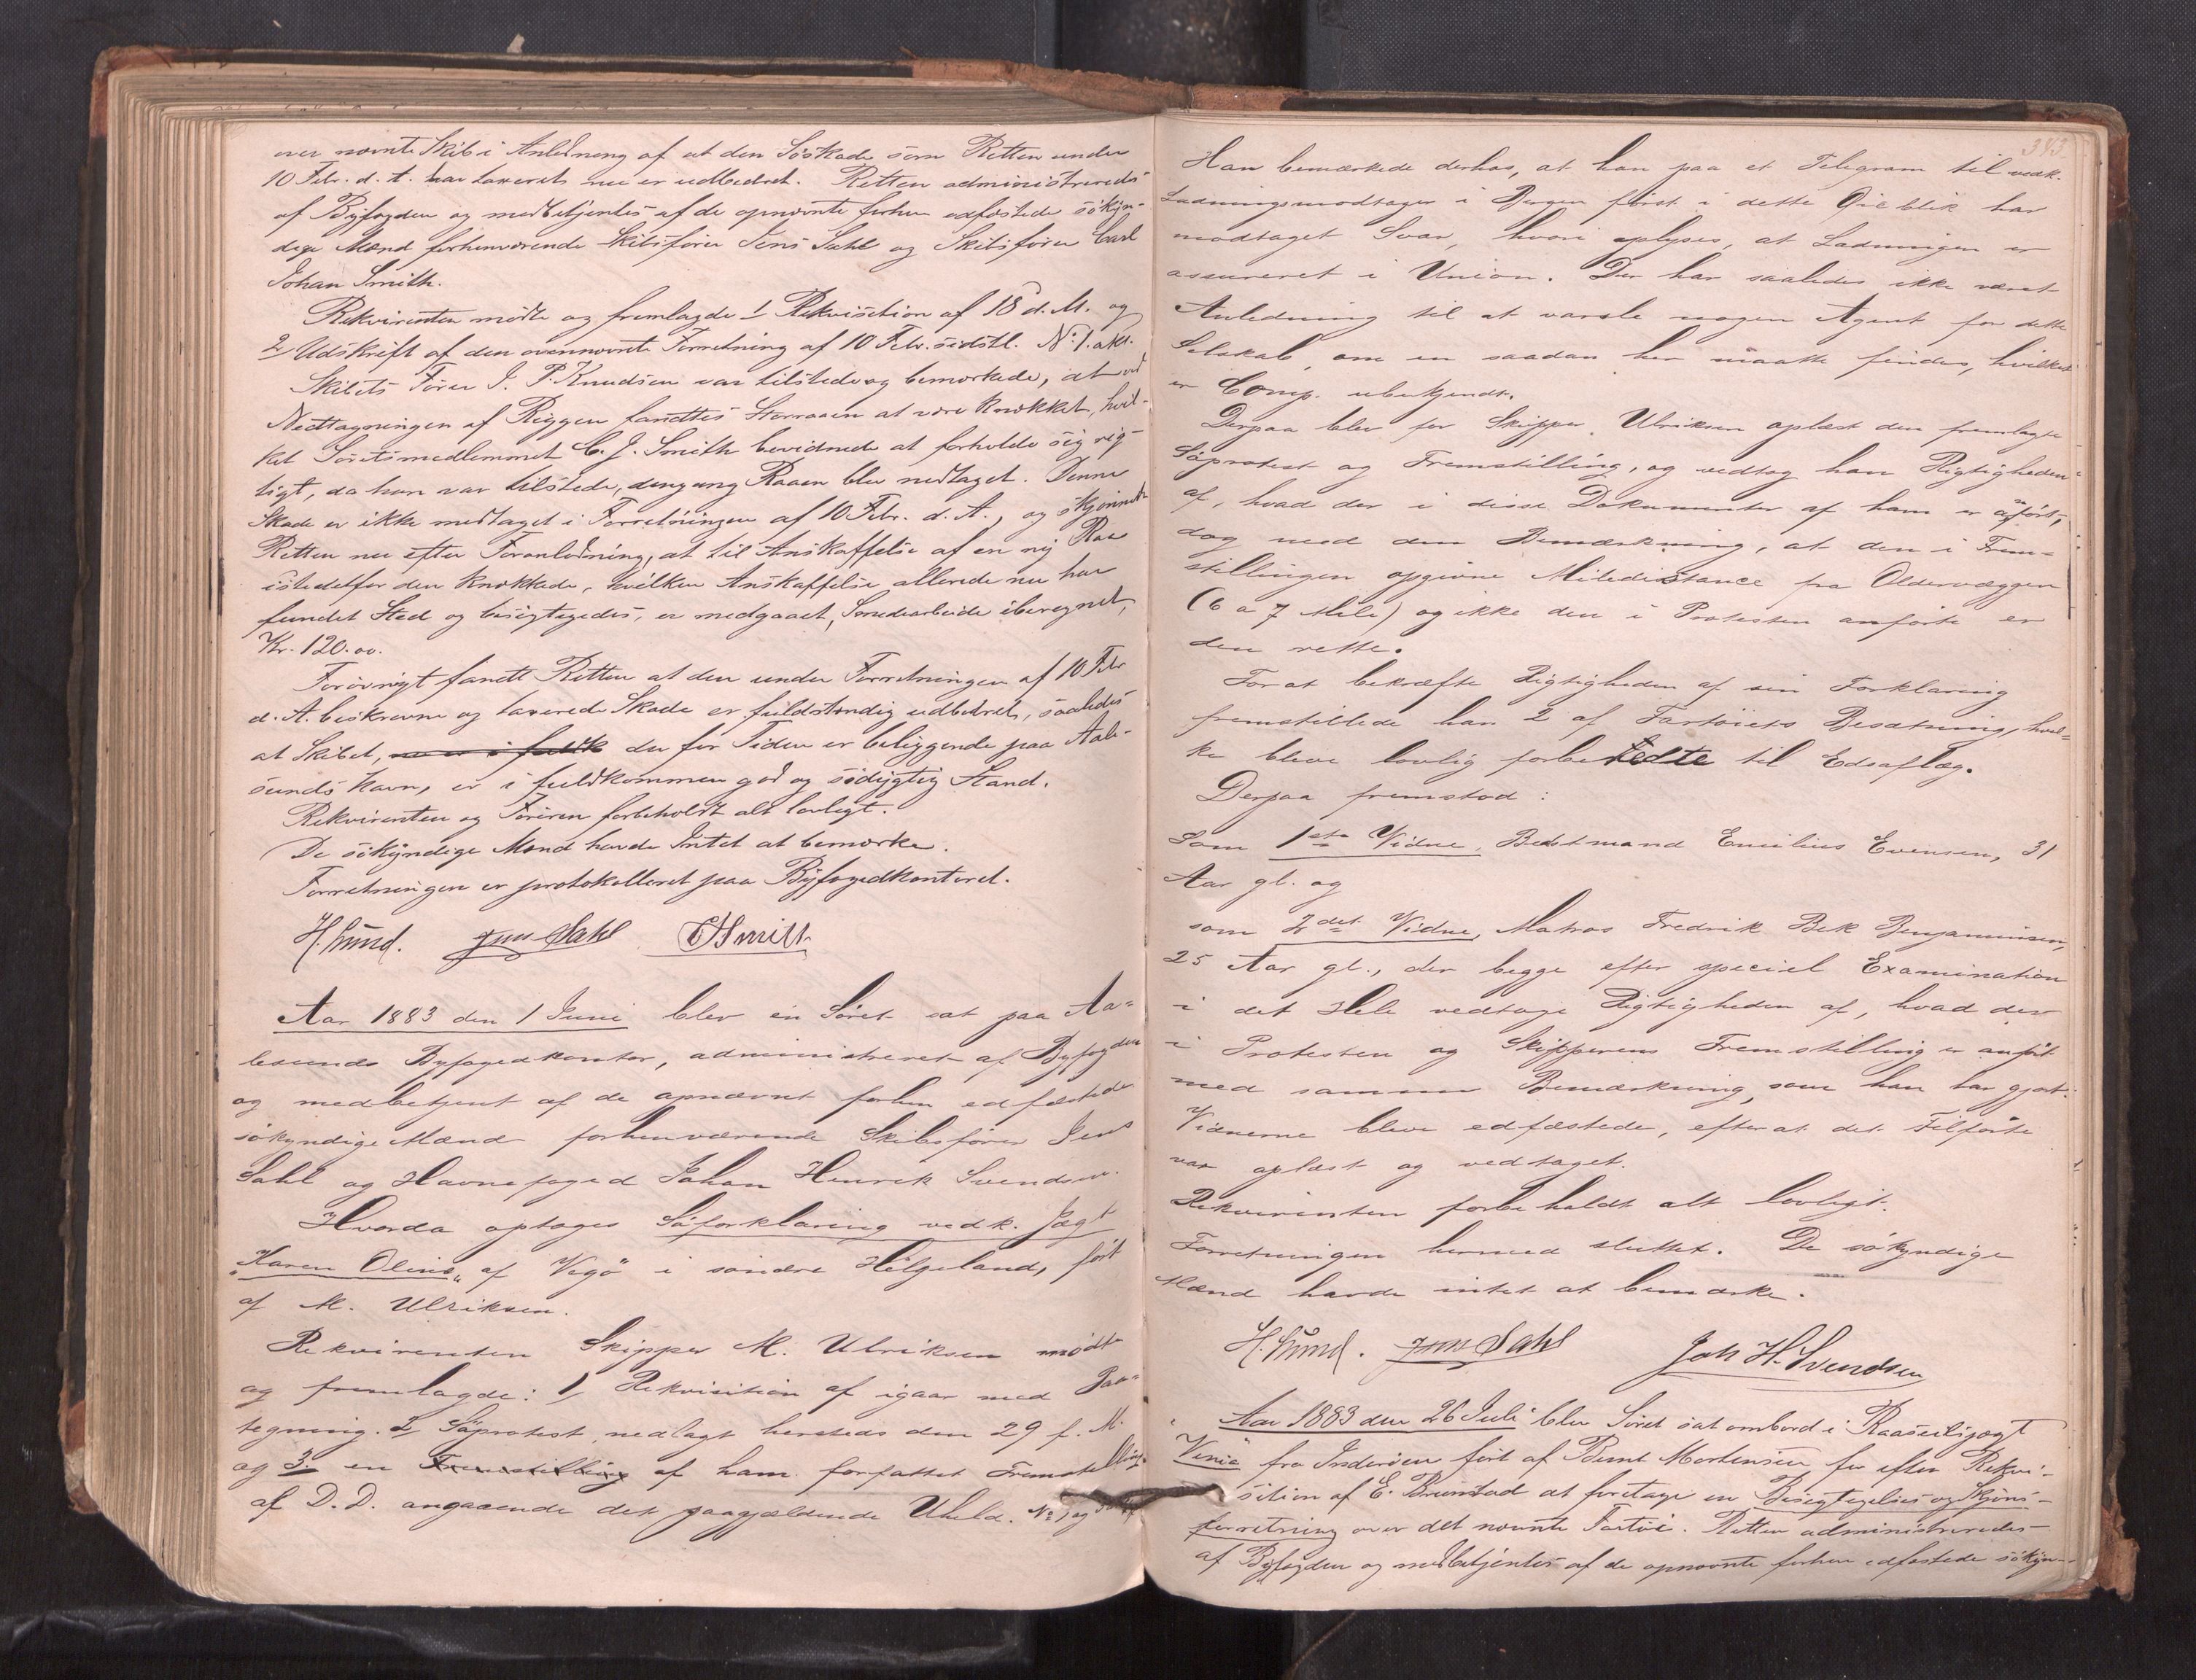 over nævnte Skib i Anledning af at den Söskade som Retten under
10 Febr. d. A. har taxeret nu er udbedret. Retten administreredes
af Byfogden og medbetjentes af de opnævnte forhen edfæstede sökyn-
dige Mænd forhenværende Skibsfører Jens Dahl og Skibsfører Carl
Johan Smith.
Rekvirenten mødte og fremlagde 1 Rekvisition af 18 d. M. og
2 Udskrift af den ovennævnte Forretning af 10 Febr. sidstl. No 1. akt.
Skibets Fører J. P. Knudsen var tilstede og bemærkede, at ved
Nedtagningen af Riggen fandtes Storraaen at være knækket, hvil-
ket Søretsmedlemmet C. J. Smith bevidnede at forholde sig rig-
tigt, da han var tilstede, dengang Raaen blev nedtaget. Denne
Skade er ikke medtaget i Forretningen af 10 Febr. d. A., og skjönnede
Retten nu efter Foranledning, at til Anskaffelse af en ny Raa
istedetfor den knækkede, hvilken Anskaffelse allerede nu har
fundet Sted og besigtigedes, er medgaaet, Smedearbeide iberegnet,
Kr. 120.00.
Forövrigt fandt Retten at den under Forretningen af 10 Febr
d. A. beskrevne og taxerede Skade er fuldstændig udbedret, saaledes
at Skibet, der for Tiden er beliggende paa Aale-
sunds Havn, er i fuldkommen god og södygtig Stand.
Rekvirenten og Føreren forbeholdt alt lovligt.
De sökyndige Mænd havde Intet at bemærke.
Forretningen er protokolleret paa Byfogedkontoret.
H. Lund. Jens Dahl CJSmith
Aar 1883 den 1 Juni blev en Søret sat paa Aa-
lesunds Byfogedkontor, administreret af Byfogden
og medbetjent af de opnævnte forhen edfæstede
sökyndige Mænd forhenværende Skibsfører Jens
Dahl og Havnefoged Johan Henrik Svendsen.
Hvorda optoges Söforklaring vedk. Jagt
„Karen Oline„ af Vegö i söndre Helgeland, ført
af M. Ulriksen.
Rekvirenten Skipper M. Ulriksen mødte
og fremlagde: 1, Rekvisition af igaar med Paa-
tegning. 2, Söprotest, nedlagt hersteds den 29 f. M.
og 3. en Fremstilling af ham forfattet Fremstilling
af D. D. angaaende det paagjældende Uheld. No 1 og
343
Han bemærkede derhos, at han paa et Telegram til vedk.
Ladningsmodtager i Bergen først i dette Öieblik har
modtaget Svar, hvori oplyses, at Ladningen er
assureret i Union. Der har saaledes ikke været
Anledning til at varsle nogen Agent for dette
Selskab, om en saadan her maatte findes, hvilket
er Comp. ubekjendt.
Derpaa blev for Skipper Ulriksen oplæst den fremlagte
Söprotest og Fremstilling, og vedtog han Rigtigheden
af, hvad der i disse Dokumenter af ham er anført,
dog med den Bemærkning, at den i Frem-
stillingen opgivne Miledistance fra Oldervæggen
(6 a 7 Mile) og ikke den i Protesten anførte er
den rette.
For at bekræfte Rigtigheden af sin Forklaring
fremstillede han 2 af Fartöiets Besætning, hvil-
ke bleve lovlig forberedte til Edsaflæg.
Derpaa fremstod:
Som 1ste Vidne, Bedstmand Emilius Evensen, 31
Aar gl. og
som 2det Vidne, Matros Fredrik Bek Benjaminsen,
25 Aar gl., der begge efter speciel Examination
i det Hele vedtoge Rigtigheden af, hvad der
i Protesten og Skipperens Fremstilling er anført
med samme Bemærkning, som han har gjort.
Vidnerne bleve edfæstede, efterat det Tilførte
var oplæst og vedtaget.
Rekvirenten forbeholdt alt lovligt.
Forretningen hermed sluttet. De sökyndige
Mænd havde intet at bemærke.
H. Lund. Jens Dahl Joh H. Svendsen
Aar 1883 den 26 Juli blev Søret sat ombord i Raaseilsjagt
Venia fra Inderöen ført af Bernt Mortensen for efter Rekvi-
sition af E. Brunstad at foretage en Besigtigelses og Skjøns-
forretning over det nævnte Fartöi. Retten administreredes
af Byfogden og medbetjentes af de opnævnte forhen edfæstede sökyn-